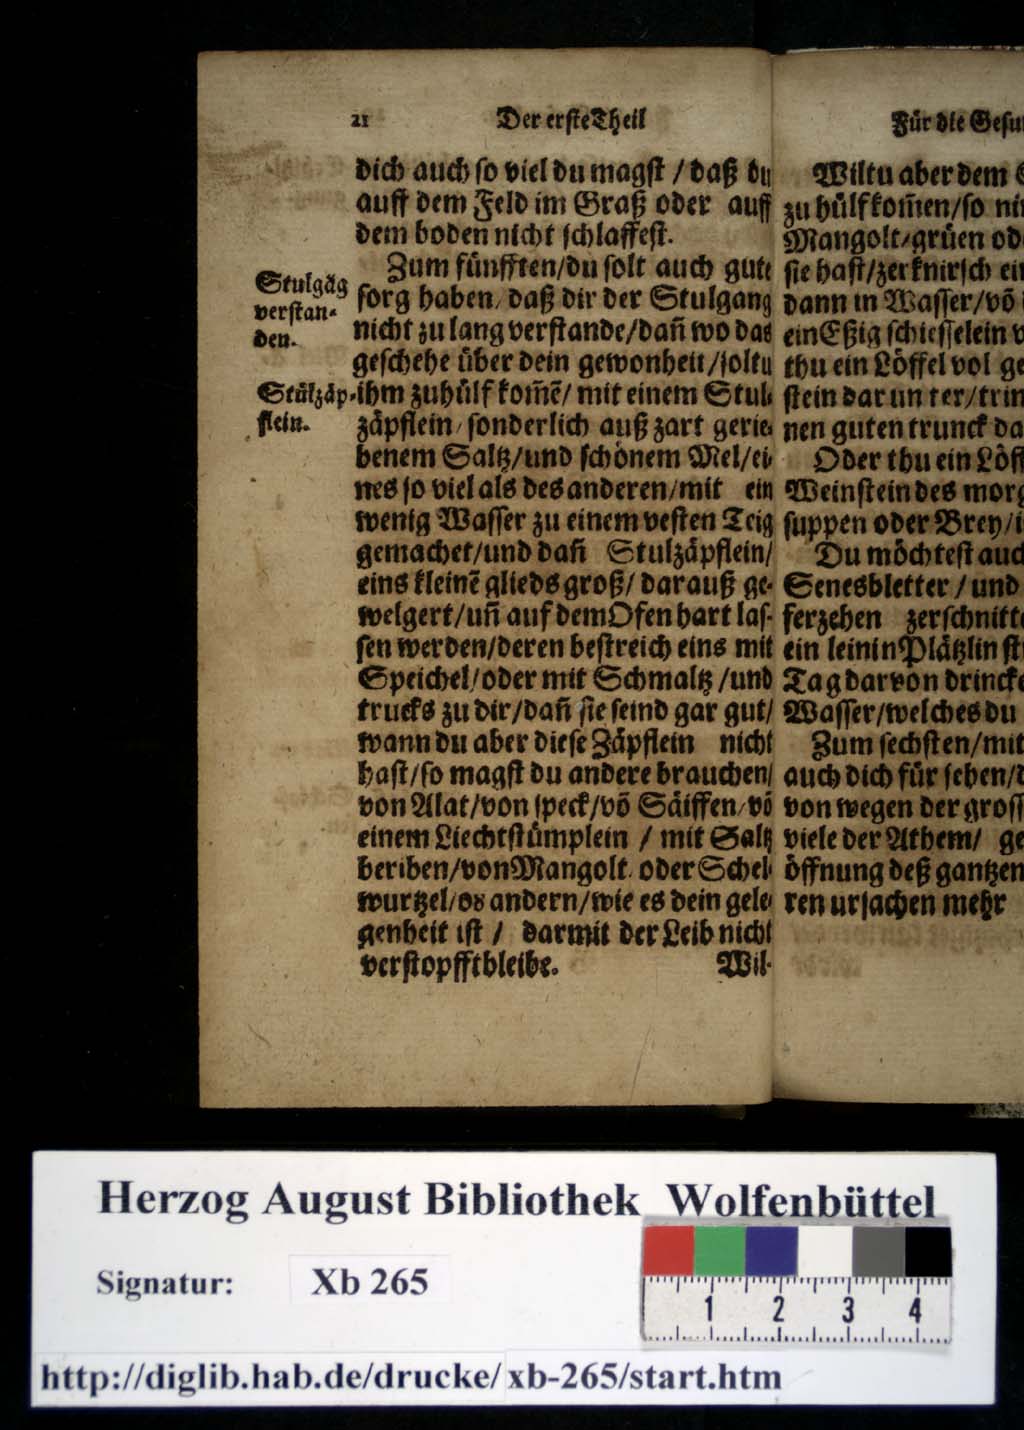 21 Der erste Theil
dich auch so viel du magst / daß du
auff dem Feld im Graß oder auff
dem boden nicht schlaffest.
Zum fünfften/du solt auch gute
sorg haben/ daß dir der Stulgang
nicht zu lang verstande/dañ wo das
geschehe über dein gewonheit/soltu
ihm zuhülf kom̃ẽ/ mit einem Stul-
zäpflein/ sonderlich auß zart gerie-
benem Saltz/und schönem Mel/ei-
nes so viel als des anderen/mit ein
wenig Wasser zu einem vesten Teig
gemachet/und dañ Stulzäpflein/
eins kleinẽ glieds groß/ darauß ge-
welgert/uñ auf dem Ofen hart las-
sen werden/deren bestreich eins mit
Speichel/oder mit Schmaltz /und
trucks zu dir/dañ sie seind gar gut/
wann du aber diese Zäpflein nicht
hast/so magst du andere brauchen/
von Alat/von speck/võ Säiffen/võ
einem Liechtstümplein / mit Saltz
beriben/von Mangolt/ oder Schel-
wurtzel/oď andern/wie es dein gele-
genheit ist / darmit der Leib nicht
verstopfft bleibe. Wil-
Stulgãg
verstan-
den.
Stůlzäp-
flein.
Für die Gesu
Wiltu aber dem
zu hülf kom̃en/so ni
Mangolt/grüen od
sie hast/zerknirsch ei
dann in Wasser/võ
ein Eßig schiesselein
thu ein Löffel vol ge
stein darunter/trin
nen guten trunck da
Oder thu ein Löf
Weinstein des morg
suppen oder Brey/i
Du möchtest auc
Senesbletter / und
ferzehen zerschnitt
ein leinin Plätzlin st
Tag darvon drincke
Wasser/welches du
Zum sechsten/mit
auch dich für sehen/
von wegen der gross
viele der Athem/ ge
öffnung deß gantzen
ren ursachen mehr
Herzog August Bibliothek Wolfenbüttel
Signatur: Xb 265
1 2 3 4
http://diglib.hab.de/drucke/xb-265/start.htm